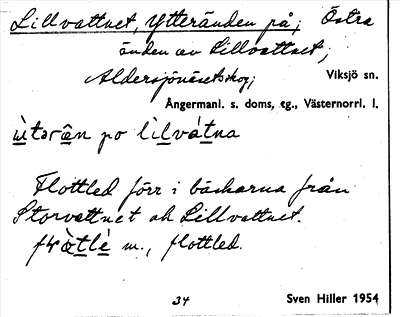 Lillvattnet, Ytteränden på; Östra
änden av Lillvattnet;
Aldersjönäsetskog; Viksjö sn.
Ångermanl. s. doms. tg., Västernorrl. l.
ùtərân po lìlvátna
Flottled förr i bäckarna från
Storvattnet ok Lillvattnet.
m., flottled.
34 Sven Hiller 1954